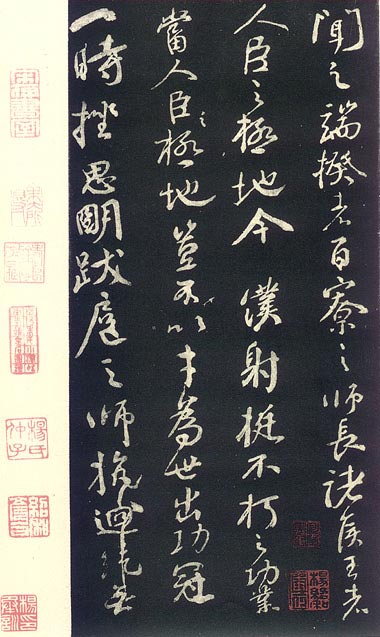 聞之端揆者百寮之師長諸侯王者
人臣之極地今僕射挺不朽之功業
當人臣之極地豈不以才為世出功冠
一時挫思明跋扈之師抗迴紇無
楊氏
仲子